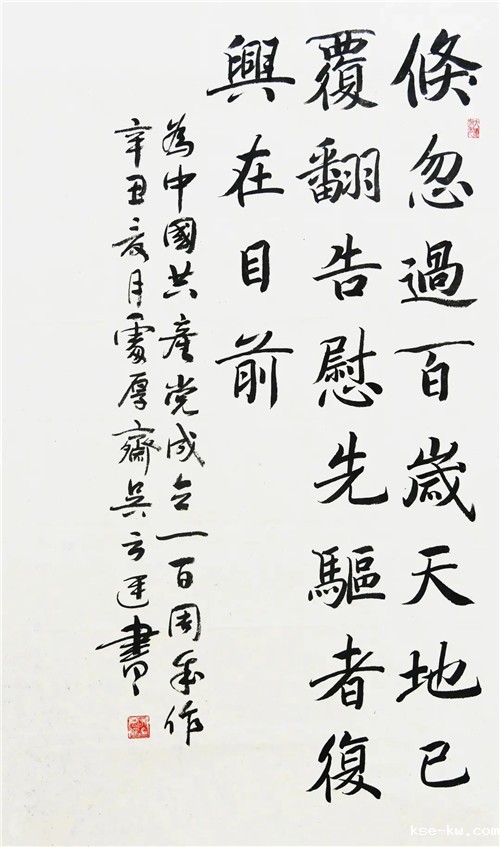 倏忽過百歲天地已
覆翻告慰先驅者復
興在目前
為中國共產党成立一百周年作
辛丑夏月處厚齋吳云廷書
kse-kw.com